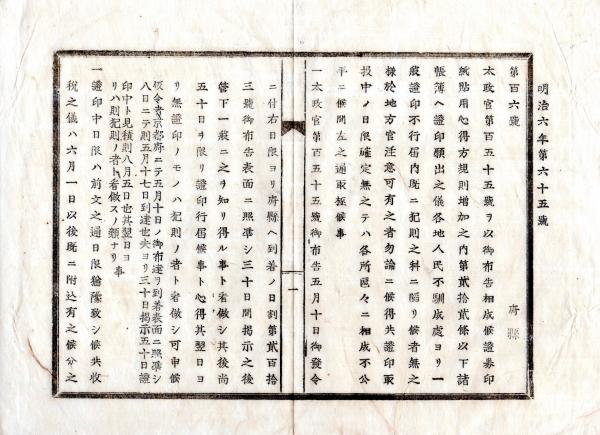 明治六年第六十五號
第百六號
府縣
太政官第百五十五號ヲ以御布告相成候證券印
紙貼用心得方規則增加之内第貳拾貳條以下諸
帳簿ヘ證印願出之儀各地人民不馴成處ヨリ一
般證印不行屆内既ニ犯則之科ニ陷リ候者無之
樣於地方官注意可有之者勿論ニ候得共證印取
扱中ノ日限確定無之テハ各所區々ニ相成不公
平ニ候間左之通取極候事
一太政官第百五十五號御布告五月十日御發令
ニ付右日限ヨリ府縣ヘ到着ノ日割第貳百拾
三號御布告表面ニ照準シ三十日間揭示之後
管下一般ニ之ヲ知リ得ル事ト看做シ其後尚
五十日ヲ限リ證印行屆候事ト心得其翌日ヨ
リ無證印ノモノハ犯則ノ者ト看做シ可申候
假令者京都府ニテ五月十日ノ御布達ヲ到着表面ニ照準シ
八日ニテ則五月十七日到達也夫ヨリ三十日揭示五十日證
印中ト見積則八月五日也其翌日ヨ
リハ則犯則ノ者ト看做スノ類ナリ 事
一證印中日限ハ前文之通日限猶豫致シ候共收
税之儀ハ六月一日以後既ニ附込有之候分之
一